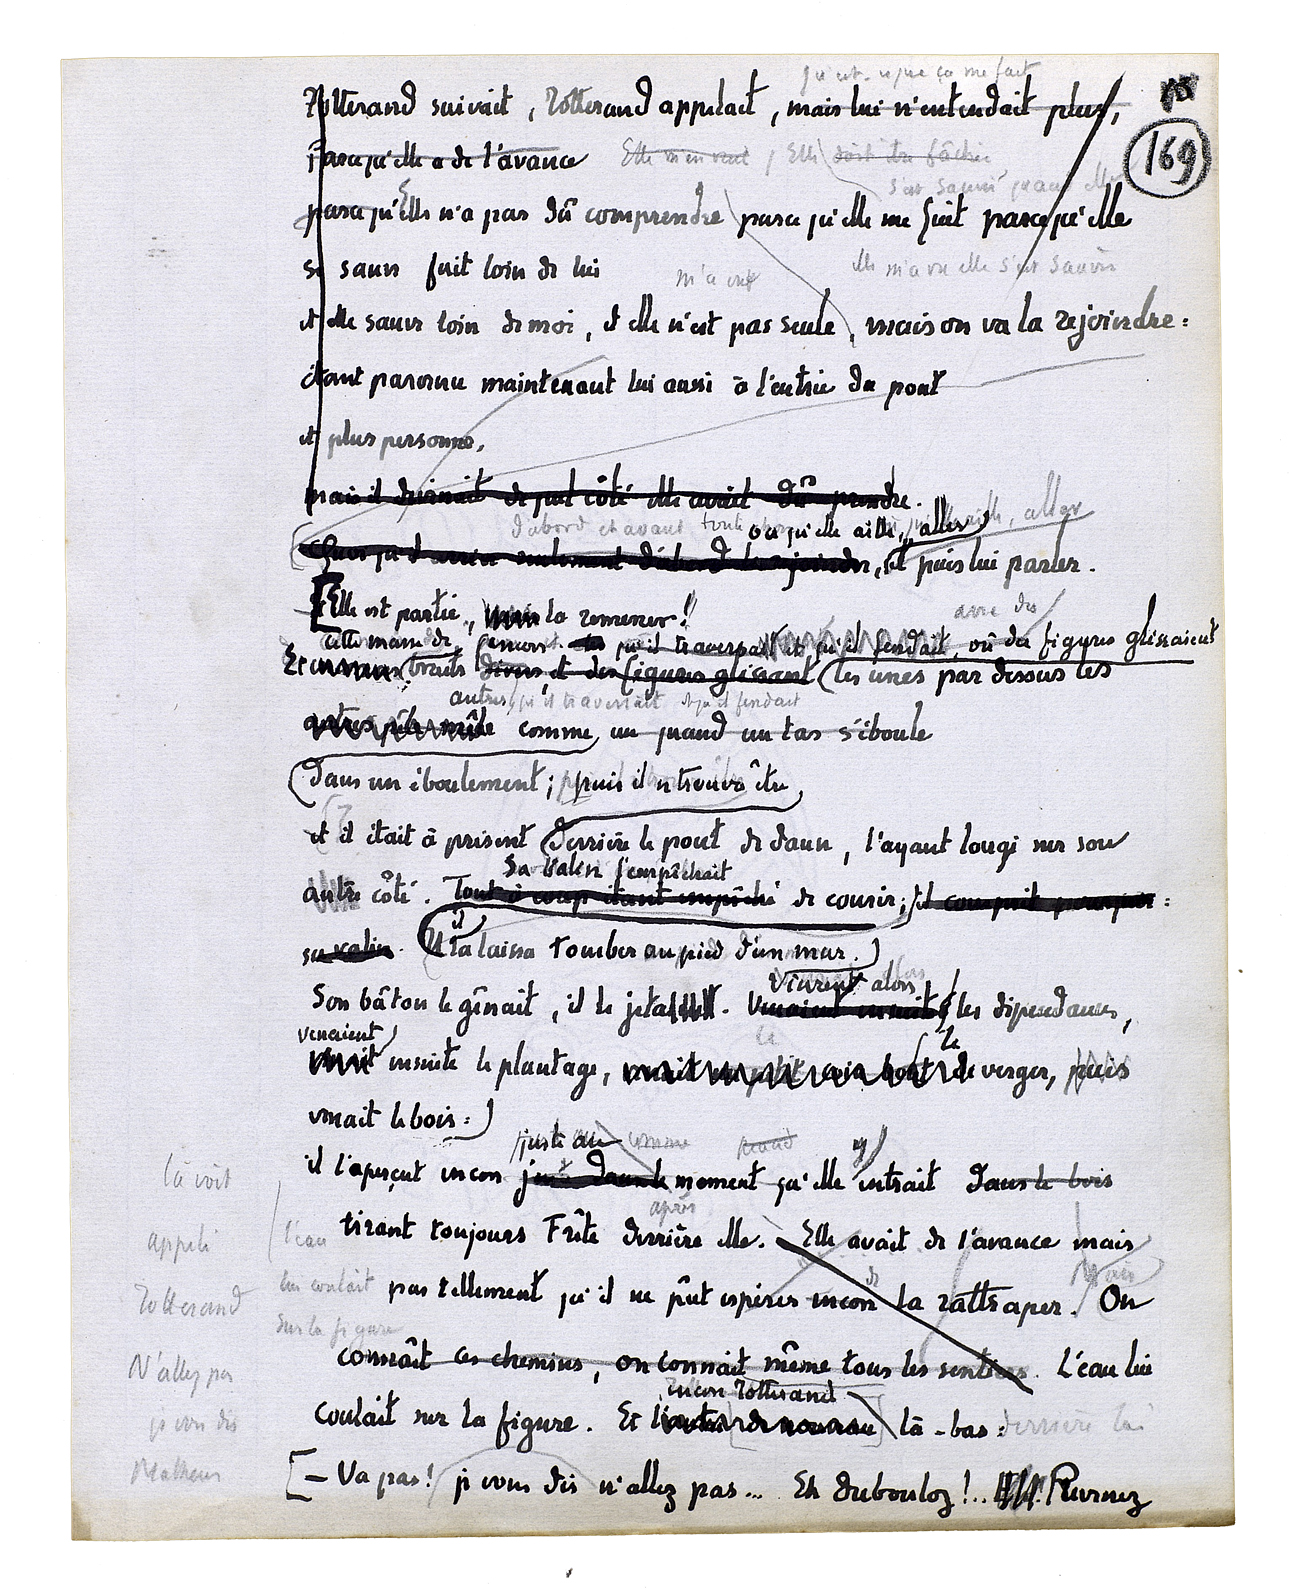 qu'est-ce que ça me fait
Zotterand suivait, Zotterand appelait, mais lui n'entendait plus,
169
parce qu'elle a de l'avance Elle m'en veut Elle doit être fâchée
s'est sauvé quand elle
parce qu'Elle n'a pas dû comprendre parce qu'elle me fuit parce qu'elle
se sauve fuit loin de lui m'a vu elle m'a vu elle s'est sauvée
et elle sauve loin de moi, et elle n'est pas seule, mais on va la rejoindre :
étant parvenu maintenant lui aussi à l'entrée du pont
et plus personne,
mais il devinait de quel côté elle avait dû prendre.
d'abord et avant tout où qu'elle aille, aller aller
rejoindre, et puis lui parler.
Elle est partie, la ramener!
avec des
qu'il traversait et qu'il fendait, où des figures glissaient
Et bruits divers et des figures glissant les unes par dessus les
autres, qu'il traversait et qu'il fendait
autres pêle mêle comme, un quand un tas s'éboule
dans un éboulement; puis il se trouva être
et il était à présent derrière le pont de danse, l'ayant longé sur son
Sa valise l'empêchait
autre côté. Tout à coup étant empêché de courir; il comprit pourquoi :
sa valise. il la laissa tomber au pied d'un mur.
Vinrent alors
Son bâton le gênait, il le jeta. Venaient ensuite les dépendances,
venaient le
venait ensuite le plantage, verger, puis
venait le bois :
juste au comme quand y
il l'aperçut encore juste dans le moment qu'elle entrait dans le bois
après
tirant toujours Frête derrière elle. Elle avait de l'avance mais
de Mais
pas tellement qu'il ne pût espérer encore la rattraper. On
connaît ces chemins, on connaît même tous les sentiers. L'eau lui
encore Zotterand
coulait sur la figure. Et de nouveau là-bas : derrière lui
— Va pas! je vous dis n'allez pas... Eh Dubouloz!.. Revenez
la voit
appelé
Zotterand
N'allez pas
je vous dis
l'eau
lui coulait
sur la figure